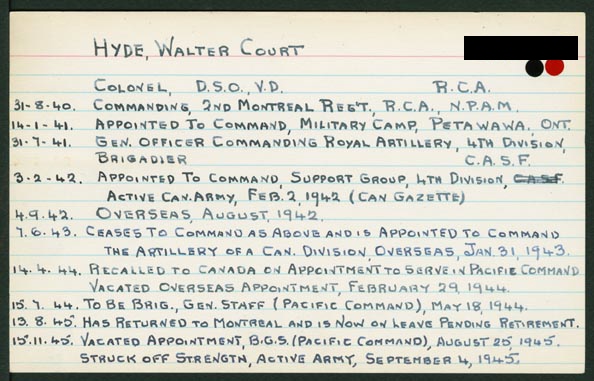 HYDE, WALTER COURT
COLONEL, D.S.O., V.D. R.C.A.
31-8-40. COMMANDING, 2ND MONTREAL REG'T., R.C.A., N.P.A.M.
14-1-41. APPOINTED TO COMMAND, MILITARY CAMP, PETAWAWA, ONT.
31-7-41. GEN. OFFICER COMMANDING ROYAL ARTILLERY, 4TH DIVISION,
BRIGADIER C.A.S.F.
3-2-42. APPOINTED TO COMMAND, SUPPORT GROUP, 4TH DIVISION, C.A.S.F.
ACTIVE CAN. ARMY, FEB. 2, 1942 (CAN GAZETTE)
4.9.42. OVERSEAS, AUGUST, 1942.
7.6.43. CEASES TO COMMAND AS ABOVE AND IS APPOINTED TO COMMAND
THE ARTILLERY OF A CAN. DIVISION, OVERSEAS, JAN. 31, 1943.
14.4.44. RECALLED TO CANADA ON APPOINTMENT TO SERVE IN PACIFIC COMMAND
VACATED OVERSEAS APPOINTMENT, FEBRUARY 29, 1944.
15.7.44. TO BE BRIG., GEN. STAFF (PACIFIC COMMAND), MAY 18, 1944.
13.8.45. HAS RETURNED TO MONTREAL AND IS NOW ON LEAVE PENDING RETIREMENT.
15.11.45. VACATED APPOINTMENT, B.G.S. (PACIFIC COMMAND), AUGUST 25, 1945.
STRUCK OFF STRENGTH, ACTIVE ARMY, SEPTEMBER 4, 1945.